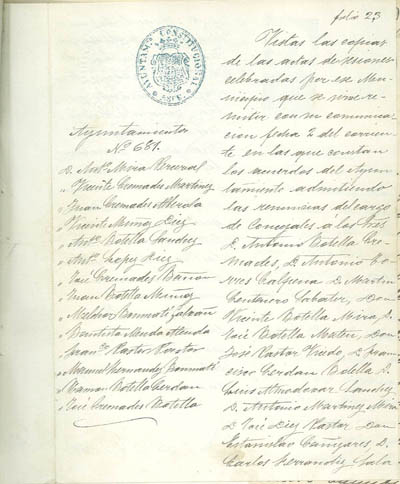 folio 23
AYUNTAMTO CONSTITUCIONAL
ASPE
Ayuntamiento
Nº 681.
D. Antº Mira
" Vicente Cremades Martinez
" Juan Cremades Alberola
" Vicente Muñoz Diez
" Antº Botella Sanchez
" Antº Lopez Diez
" José Cremades
" Juan Botella Muñoz
" Melchor
" Bautista
" Franco Pastor Pastor
" Manuel Hernandez Bonmati
" Ramon Botella Cerdan
" José Cremades Botella
Vistas las copias
de las actas de sesiones
celebradas por ese Mu-
nicipio que se sirve re-
mitir con su comunica-
cion fecha 2 del corrien-
te en las que constan
los acuerdos del Ayun-
tamiento admitiendo
las renuncias del cargo
de Concejales a los Sres
D. Antonio Botella Cre-
mades, D. Antonio Co-
rres Calpena D. Martin
Cantavero Sabater, Don
Vicente Botella Mira, D.
José Botella Mateu, Don
José Pastor D. Fran-
cisco Cerdan Botella D.
Luis Almodovar Sanchez
D. Antonio Martinez Mira
D. José Diez Pastor, Don
Estanislao Cañizares, D.
Carlos Hernandez